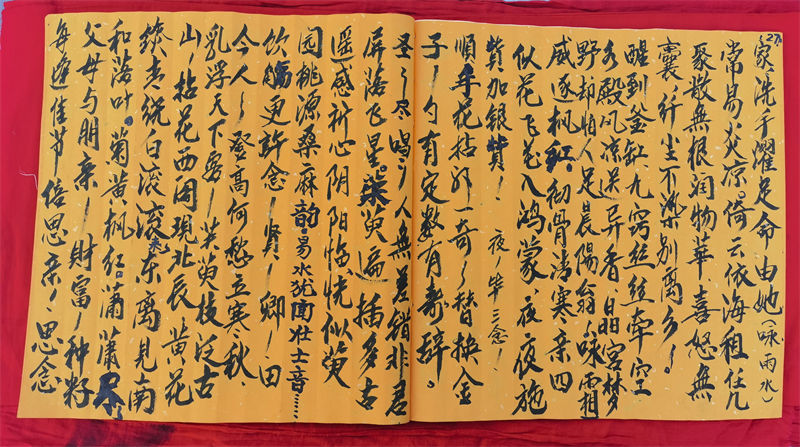 27
家、洗手濯足命由她(咏雨水)
常易炎凉。倚云依海租任几
聚散無根润物華、喜怒無
囊、纤尘不染别离乡、
醒到釜缸九窍丝丝牵、空
水殿风凉送异香、晶宫梦
野却怕人足晨陽翁、咏霜
威逐枫红、彻骨清寒亲四
似花飞花入鸿蒙、夜夜施
赞加银赞、夜、毕三念、
順手花拈那一奇、替换金
子、勺有定数有毒辞。
圣、尽喝、人無差错非君
屏落飞星。柒萸遍插多古
遥感祈心阴阳临、恍似萸
园桃源桑麻韵。易水犹闻壮士音……
饮觞更许念、贤、卿、田
今人、登高何愁立寒秋、
乳浮天下勇、茱萸枝泛古
山、拈花西阁現北辰、黄花
簇老绕白滚滚、东离見南
和落叶。菊黄枫红。萧萧尽
父母与朋亲、财富、种籽
每逢佳节倍思亲、思念